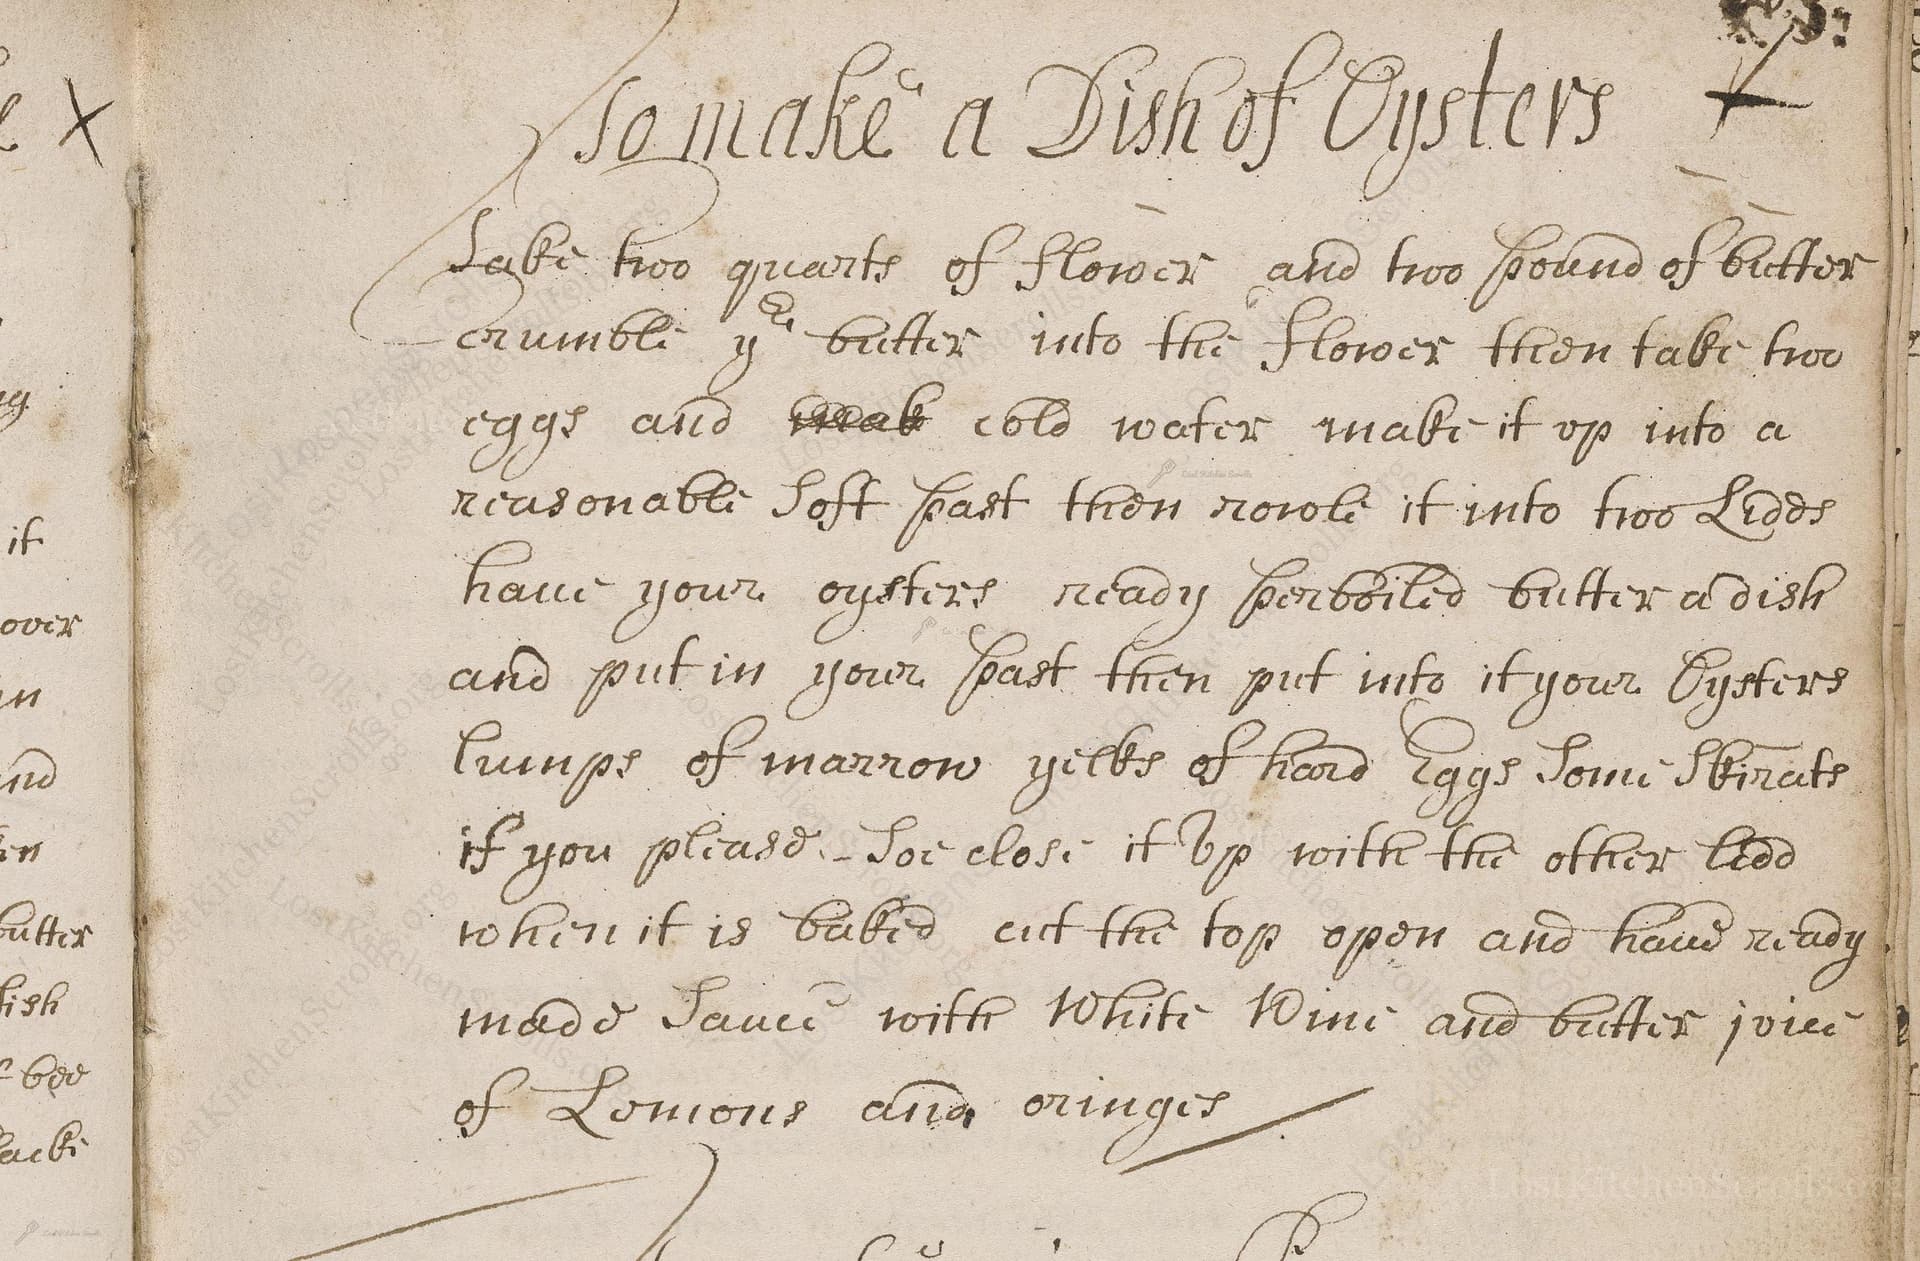 To make a Dish of Oysters
Take two quarts of flower and two pound of butter
crumble ye butter into the flower then take two
eggs and cold water make it vp into a
reasonable soft past then rowle it into two Lidds
haue your oysters ready perboiled butter a dish
and put in your past then put into it your Oysters
lumps of marrow yelks of hard Eggs some skirats
if you please - Soe close it Vp with the other lidd
when it is baked cut the top open and haue ready
made sauce with White Wine and butter juice
of Lemons and oringes
it
over
butter
LostKitchenScrolls.org